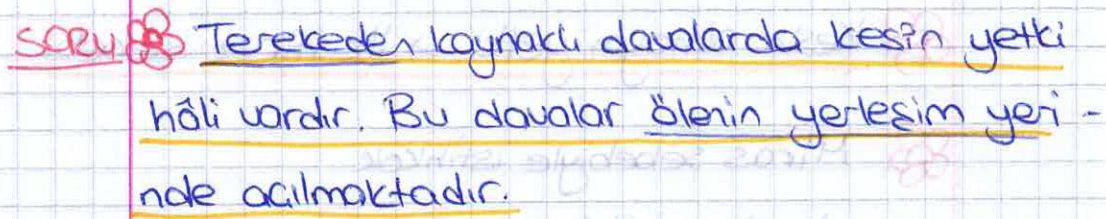 SORU Terekeden kaynaklı davalarda kesin yetki
hâli vardır. Bu davalar ölenin yerleşim yeri-
nde açılmaktadır.